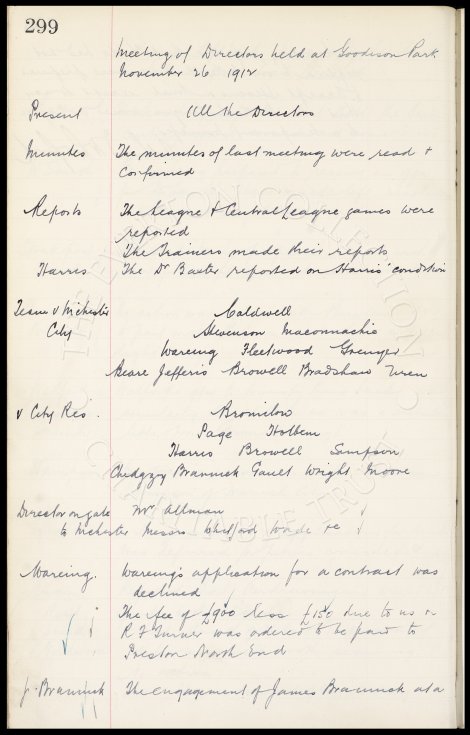 299
Meeting of Directors held at Goodison Park
November 26 1912
Present All the Directors
Minutes The minutes of last meeting were read +
confirmed
Reports The League + Central League games were
reported
The Trainers made their reports
Harris The Dr Baxter reported on Harris' condition
Team v Mchester Caldwell
City Stevenson Maconnachie
Wareing Fleetwood Grenyer
Beare Jefferis Browell Bradshaw Uren
v City Res. Bromilow
Page Holbem
Harris Browell Simpson
Chedgzoy Brannick Gault Wright Moore
Director on gate Mr Allman
to Mchester Messrs Wade
Wareing. Wareing's application for a contract was
declined
The fee of £900 less £150 due to us
R F Turner was ordered to be paid to
Preston North End
J. Brannick The engagement of James Brannick at a
THE EVERTON COLLECTION
CHARITABLE TRUST